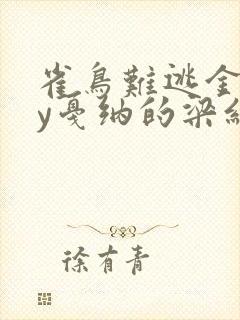 雀鳥難逃金
y戛纳的梁
徐有青